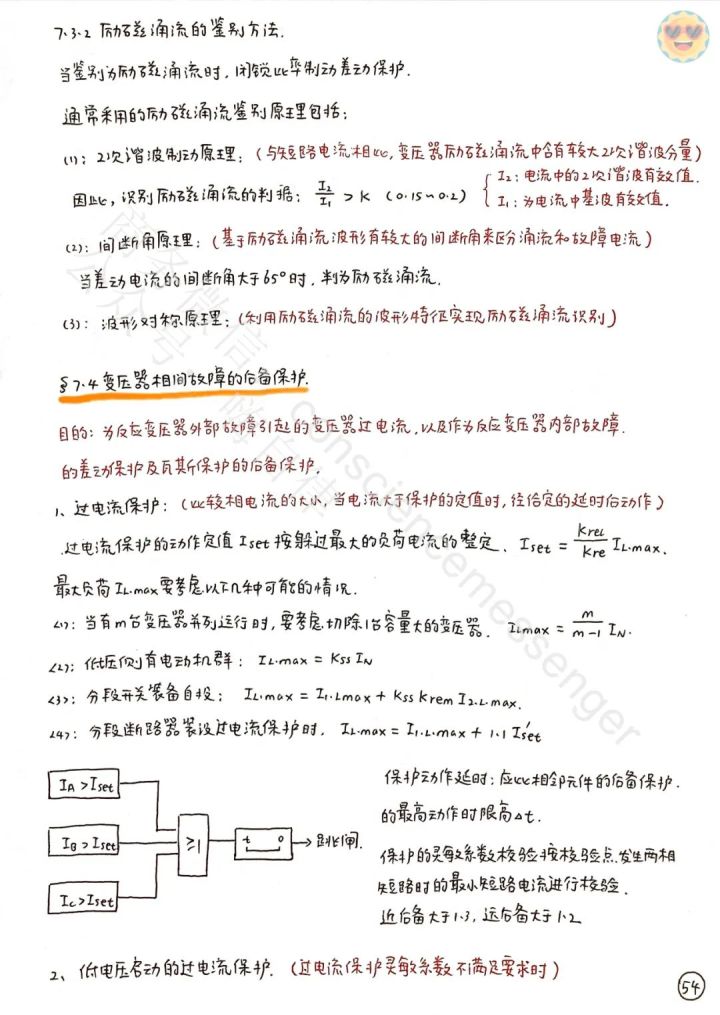 7.3.2 励磁涌流的鉴别方法.
当鉴别为励磁涌流时,闭锁比率制动差动保护.
通常采用的励磁涌流鉴别原理包括:
(1): 2次谐波制动原理:(与短路电流相比,变压器励磁涌流中含有较大2次谐波分量)
因此,识别励磁涌流的判据: I2/I1 > K (0.15~0.2) { I2:电流中的2次谐波有效值.
I1:为电流中基波有效值.
(2): 间断角原理:(基于励磁涌流波形有较大的间断角来区分涌流和故障电流)
当差动电流的间断角大于65°时,判为励磁涌流.
(3): 波形对称原理:(利用励磁涌流的波形特征实现励磁涌流识别)
§7.4 变压器相间故障的后备保护.
目的:为反应变压器外部故障引起的变压器过电流,以及作为反应变压器内部故障.
的差动保护及瓦斯保护的后备保护.
1、过电流保护:(比较相电流的大小,当电流大于保护的定值时,径给定的延时后动作)
过电流保护的动作定值 Iset 按躲过最大的负荷电流的整定. Iset = Krel/Kre IL.max.
最大负荷 IL.max 要考虑以下几种可能的情况.
<1>: 当有m台变压器并列运行时,要考虑切除1台容量大的变压器. ILmax = m/m-1 IN.
<2>: 低压侧有电动机群: IL.max = Kss IN
<3>: 分段开关装备自投: IL.max = I1.Lmax + Kss Krem I2.L.max.
<4>: 分段断路器装设过电流保护时. IL.max = I1.L.max + 1.1 I'set
IA > Iset
IB > Iset
IC > Iset
≥1
t 0
跳闸.
保护动作延时:应比相邻元件的后备保护.
的最高动作时限高△t.
保护的灵敏系数校验按校验点发生两相
短路时的最小短路电流进行校验.
近后备大于1.3,远后备大于1.2
2、低电压启动的过电流保护.(过电流保护灵敏系数不满足要求时)
54
consciencemessenger